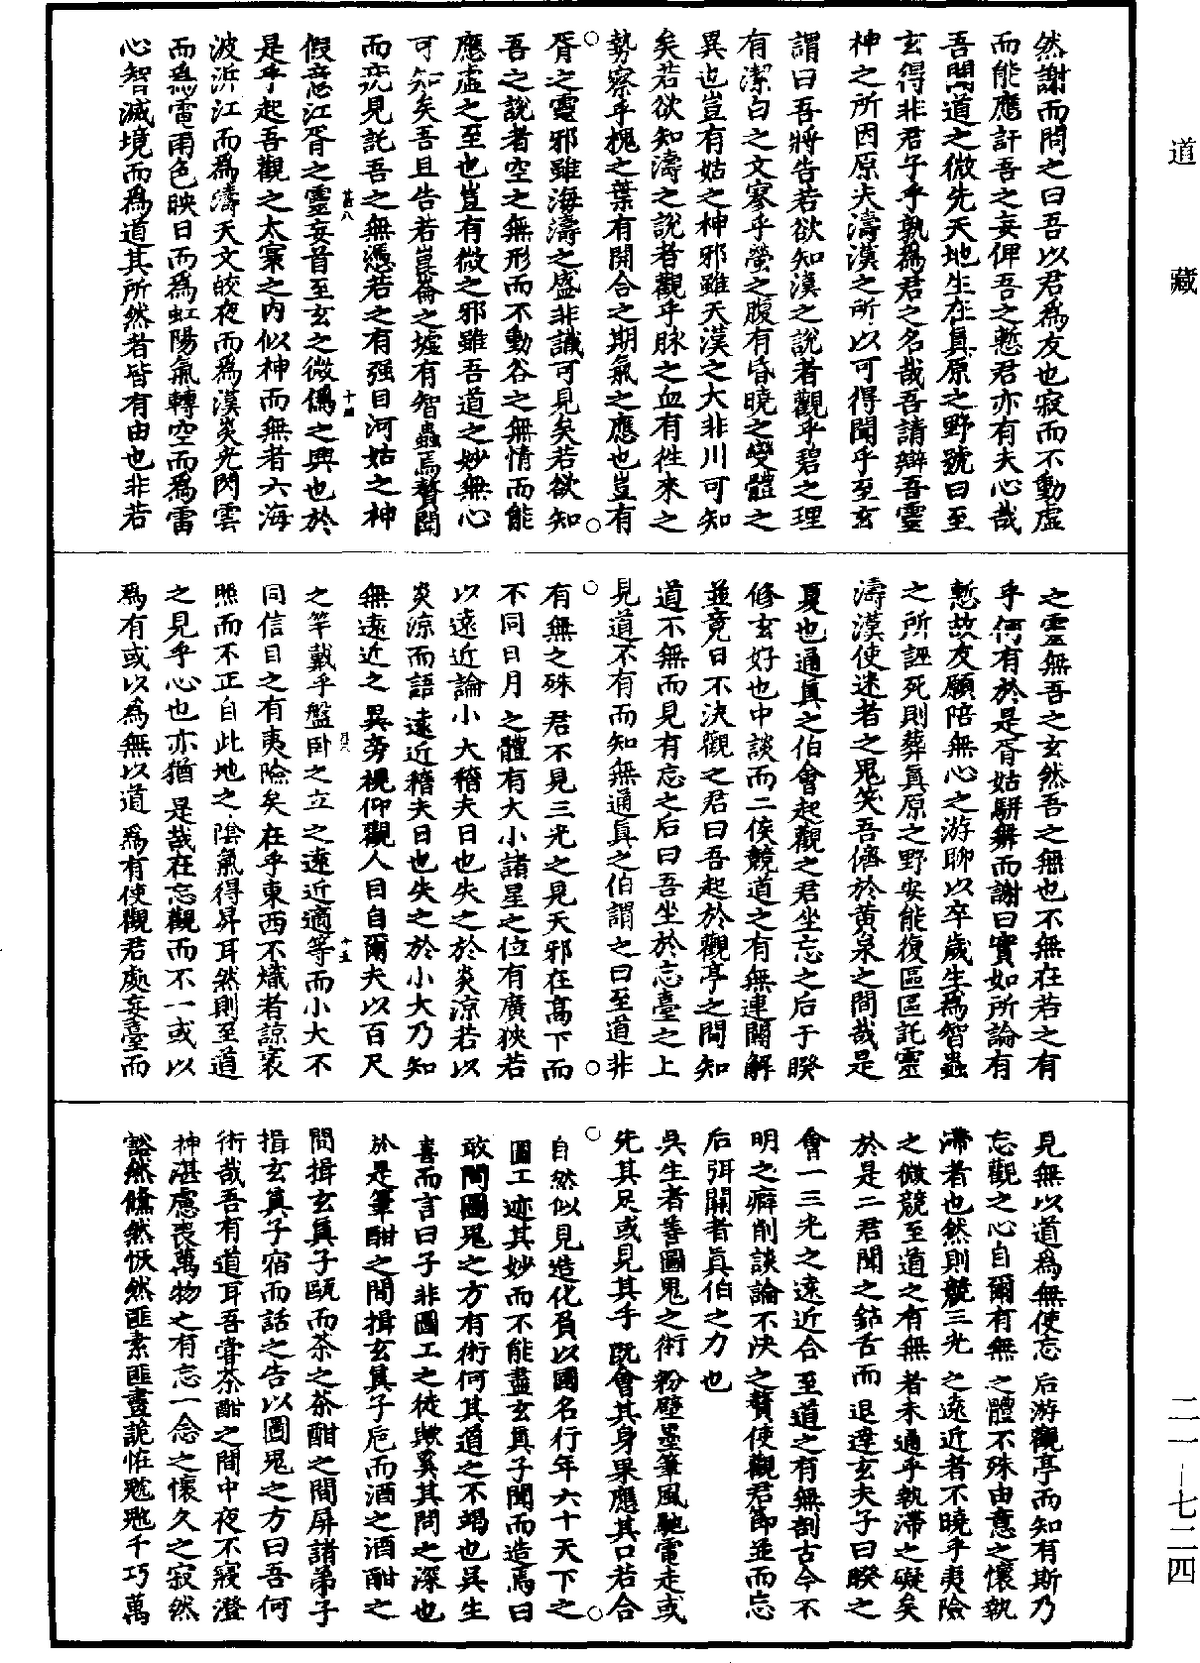 道藏
然謝而問之曰吾以君為友也寂而不動虛
而能應訐吾之妄俾吾之慙君亦有夫心哉
吾聞道之微先天地生在真原之野號曰至
玄得非君乎孰為君之名哉吾請辯吾靈
神之所因原夫濤漢之所以可得聞乎至玄
謂曰吾將告若欲知漢之說者觀乎碧之理
有潔白之文寥乎螢之腹有昏曉之變體之
異也豈有姑之神邪雖天漢之大非川可知
矣若欲知濤之說者觀乎脉之血有徃來之
勢察乎槐之葉有開合之期氣之應也豈有
胥之靈邪雖海濤之盛非識可見矣若欲知
吾之說者空之無形而不動谷之無情而能
應虛之至也豈有微之邪雖吾道之妙無心
可知矣吾且告若崑崙之墟有智蟲焉瞽聞
而㐬見託吾之無憑若之有强目河姑之神
甚八
假意江胥之靈妄音至玄之微僞之興也於
十四
是乎起吾觀之太寥之內似神而無者六海
波沂江而為濤天文皎夜而為漢炎光閃雲
而為電雨色映日而為虹陽氣轉空而為雷
心智滅境而為道其所然者皆有由也非若
之靈無吾之玄然吾之無也不無在若之有
乎何有於是胥姑駢舞而謝曰實如所論有
慙故友願陪無心之游聊以卒歲生為智蟲
之所誣死則葬真原之野安能復區區託靈
濤漢使迷者之鬼笑吾儕於黃泉之間哉是
夏也通真之伯會起觀之君坐忘之后于睽
修玄好也中談而二俟競道之有無連關解
並竟日不決觀之君曰吾起於觀亭之間知
道不無而見有忘之后曰吾坐於忘臺之上
見道不有而知無通真之伯謂之曰至道非
有無之殊君不見三光之見天邪在高下而
不同日月之體有大小諸星之位有廣狹若
以遠近論小大稽夫日也失之於炎涼若以
炎涼而語遠近稽夫日也失之於小大乃知
無遠近之異旁視仰觀人目自爾夫以百尺
之竿戴乎盤卧之立之遠近適等而小大不
十五
同信目之有夷險矣在乎東西不熾者諒衺
照而不正自此地之陰氣得昇耳然則至道
之見乎心也亦猶是哉在忘觀而不一或以
為有或以為無以道為有使觀君處妄臺而
見無以道為無使忘后游觀亭而知有斯乃
忘觀之心自爾有無之體不殊由意之懷執
滯者也然則競三光之遠近者不曉乎夷險
之微競至道之有無者未通乎執滯之礙矣
於是二君聞之鉆舌而退達玄夫子曰睽之
會一三光之遠近合至道之有無剖古今不
明之癖削談論不決之贅使觀君節並而忘
后弭關者真伯之力也
吳生者善圖鬼之術粉壁墨筆風馳電走或
先其足或見其手既會其身果應其口若合
自然似見造化負以國名行年六十天下之
圖工迹其妙而不能盡玄真子聞而造焉曰
敢問圖鬼之方有術何其道之不竭也吳生
喜而言曰子非圖工之徒歟奚其問之深也
於是筆酣之間揖玄真子巵而酒之酒酣之
間揖玄真子甌而茶之茶酣之間屏諸弟子
揖玄真子宿而話之告以圖鬼之方曰吾何
術哉吾有道耳吾嘗茶酣之間中夜不寢澄
神湛慮喪萬物之有忘一念之懷久之寂然
豁然儵然怳然匪素匪畫詭怪魑魅千巧萬
二一－七二四